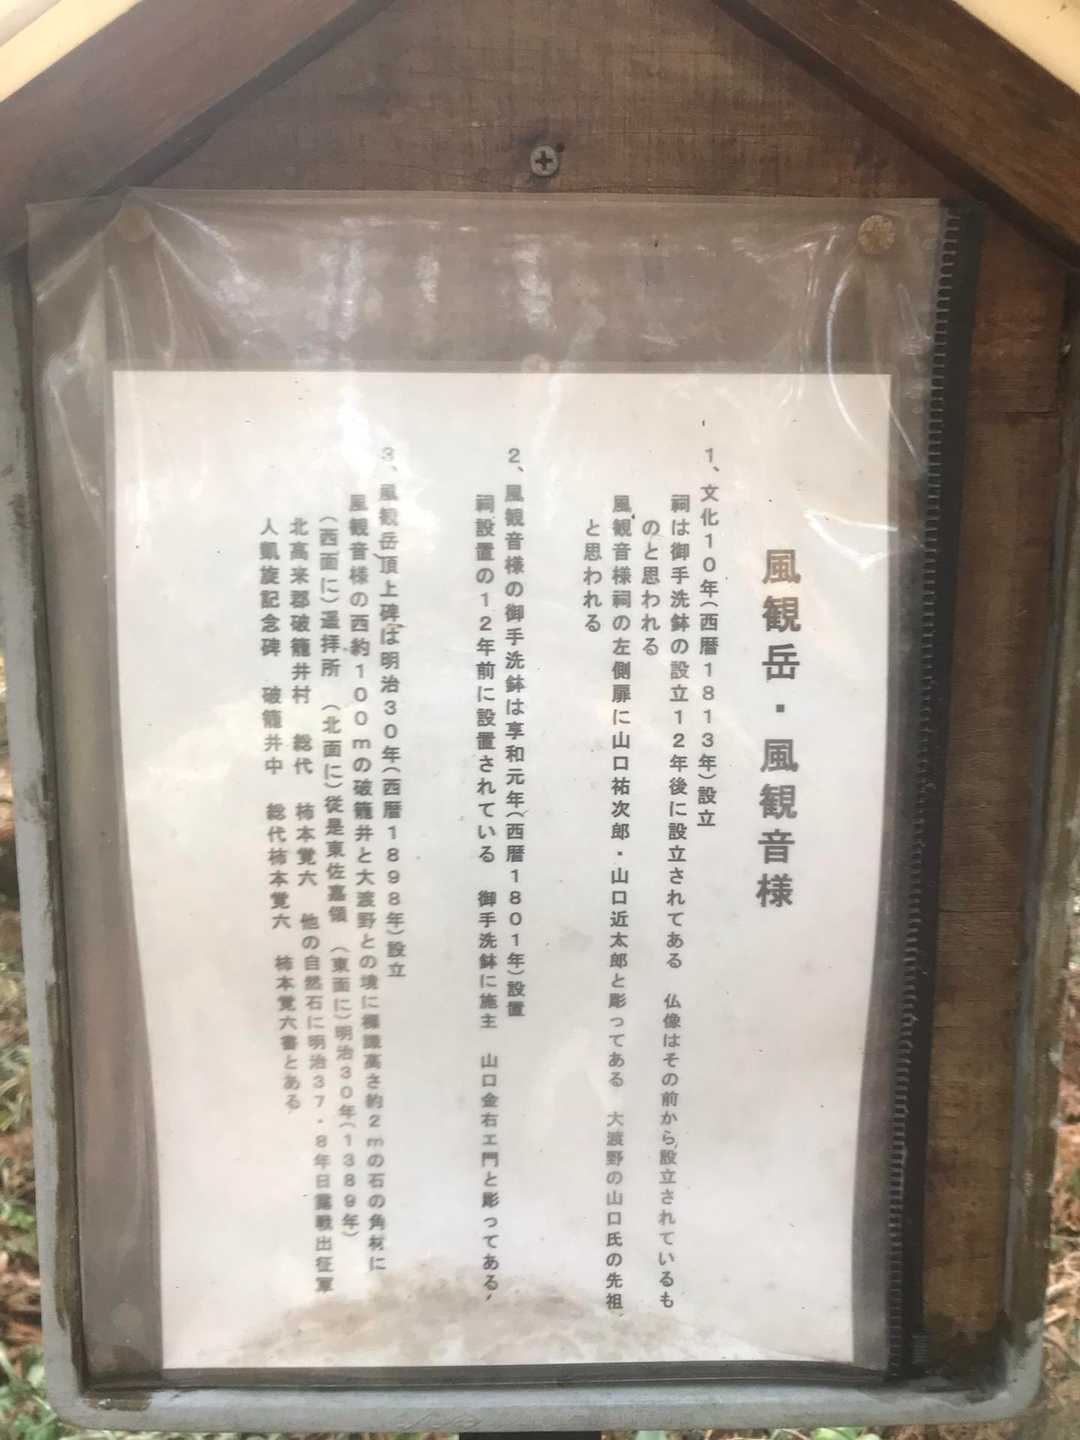 風観岳・風観音様
1、文化10年(西暦1813年)設立
祠は御手洗鉢の設立12年後に設立されてある　仏像はその前から設立されているも
のと思われる
風観音様祠の左側扉に山口祐次郎・山口近太郎と彫ってある　大渡野の山口氏の先祖
と思われる
2、風観音様の御手洗鉢は享和元年(西暦1801年)設置
祠設置の12年前に設置されている　御手洗鉢に施主　山口金右エ門と彫ってある、
3、風観岳頂上碑は明治30年(西暦1898年)設立
風観音様の西約100mの破籠井と大渡野との境に標識高さ約2mの石の角材に
(西面に)遥拝所　(北面に)従是東佐嘉領　(東面に)明治30年(1389年)
北高来郡破籠井村　総代　柿本覚六　他の自然石に明治37・8年日露戦出征軍
人凱旋記念碑　破籠井中　総代柿本覚六　柿本覚六書とある